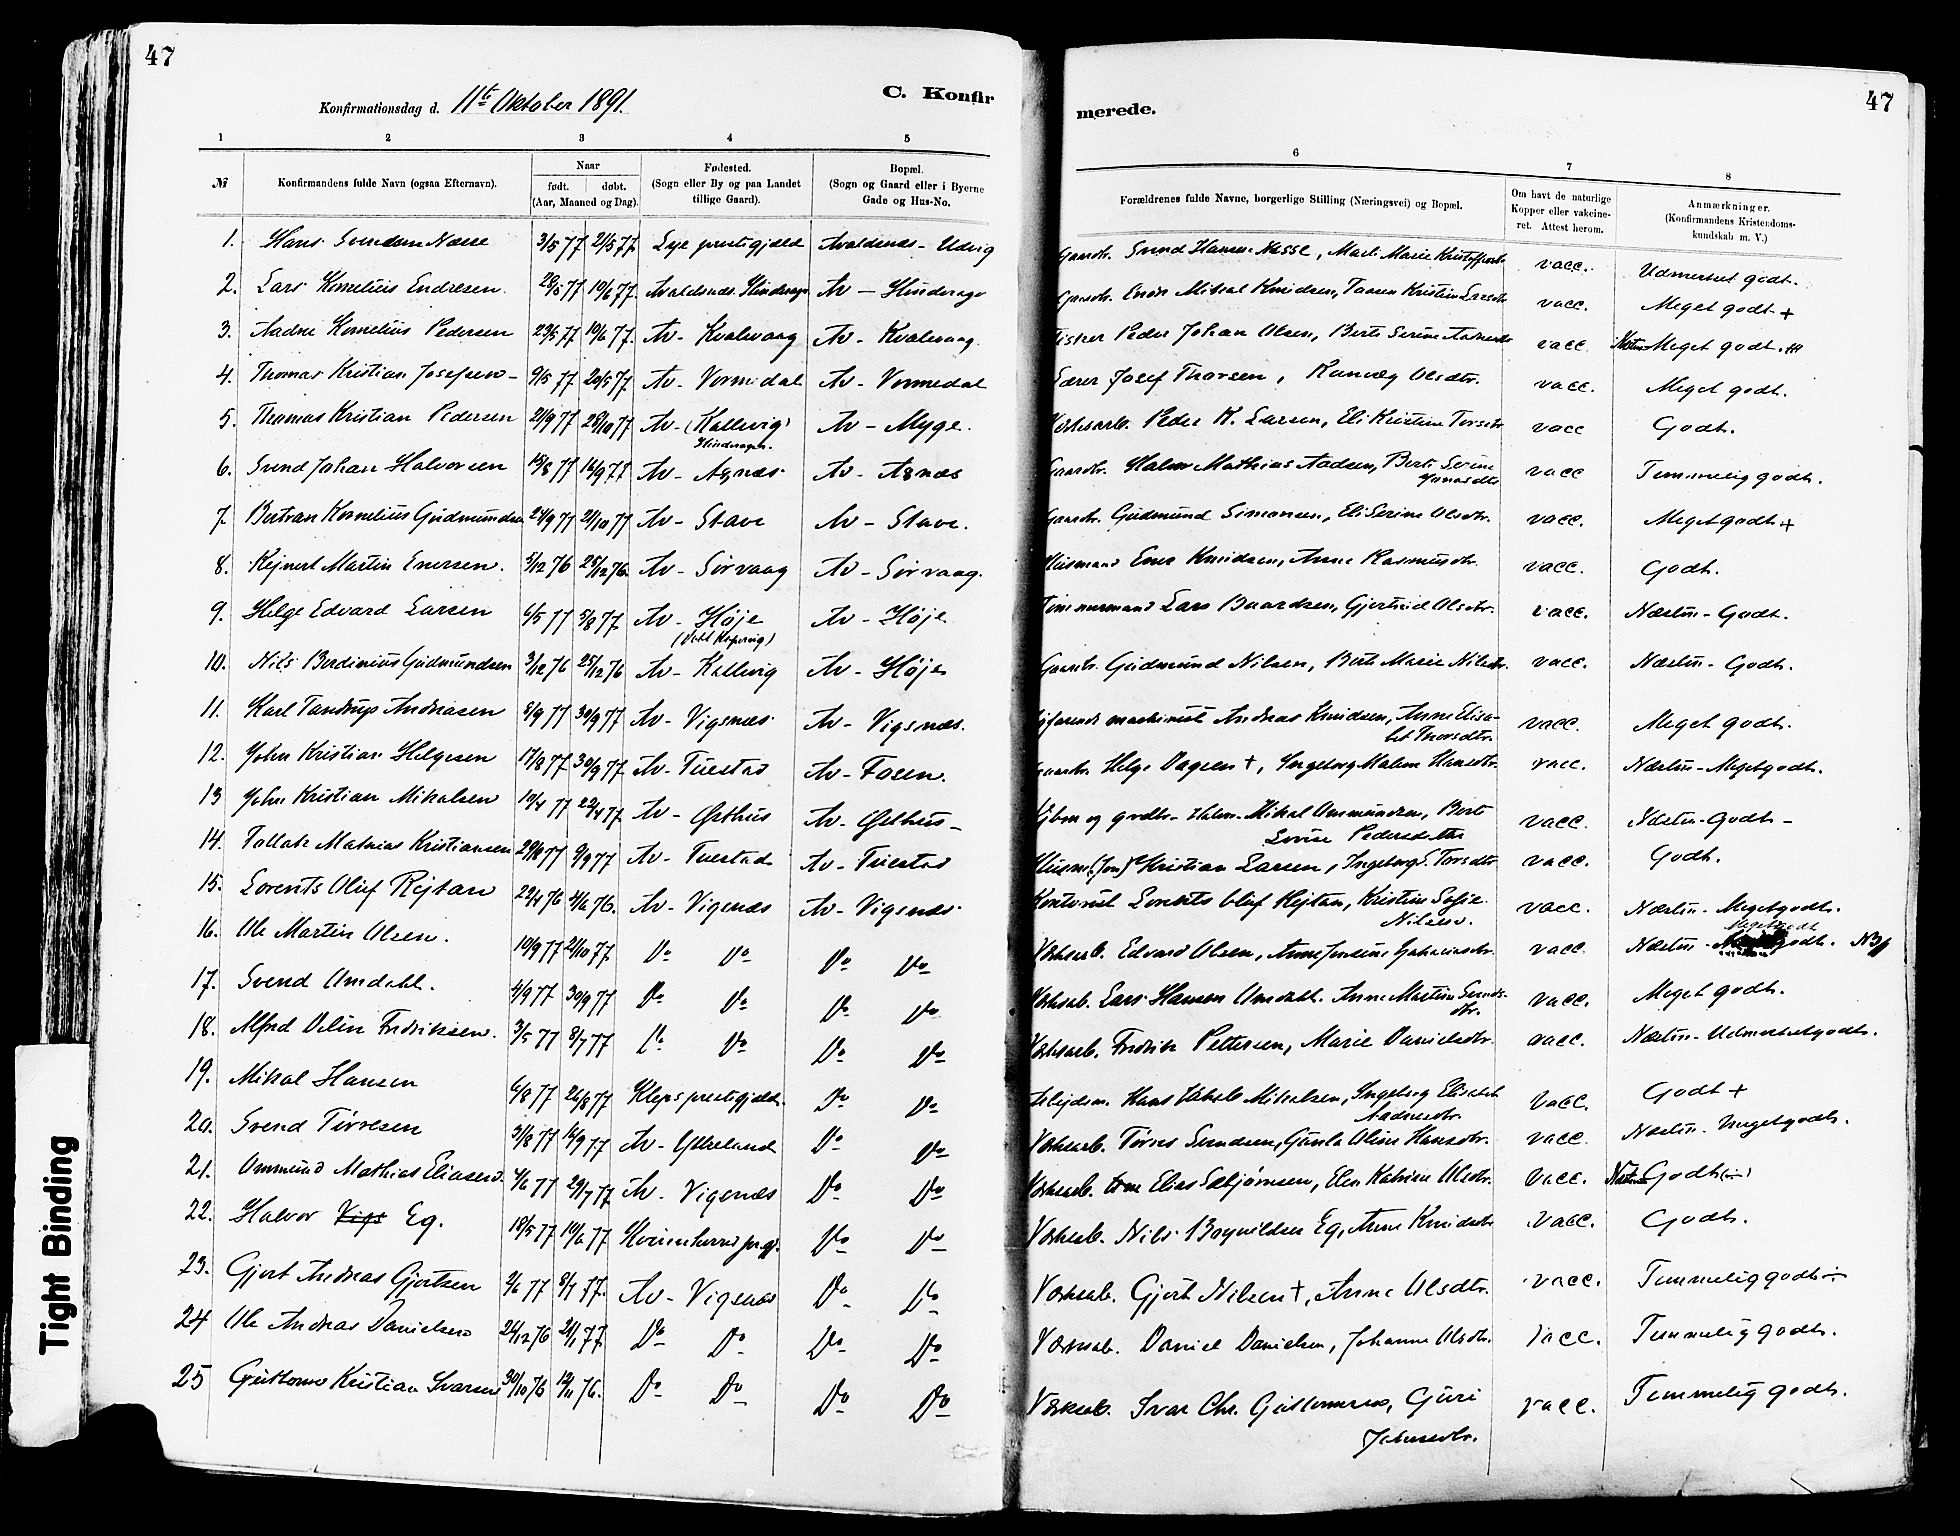 47
Konfirmationsdag d. 11te Oktober 1891.
C. Konfir
merede.
47
1 2 3 4 5 6 7 8
№
Konfirmandens fulde Navn (ogsaa Efternavn).
Naar
født. døbt.
(Aar, Maaned og Dag).
Fødested.
(Sogn eller By og paa Landet
tillige Gaard).
Bopæl.
(Sogn og Gaard eller i Byerne
Gade og Hus-No.
Forældrenes fulde Navne, borgerlige Stilling (Næringsvei) og Bopæl.
Om havt de naturlige
Kopper eller vakcine-
ret. Attest herom.
Anmærkninger.
(Konfirmandens Kristendoms-
kundskab m. V.)
1. Hans Svendsen Næsse 3/5 77 21/5 77. Avaldsnæs - Udvig Gaardbr. Svend Hansen Næsse, vacc. Udmerket godt.
2. Lars Kornelius Endresen. 28/5 77 10/6 77. Avaldsnæs. Hinderage Av - Hinderage Gaardbr. Endre Mikal Knudsen, vacc. Meget godt +
3. Aadne Kornelius Pedersen 23/5 77 10/6 77. Av - Kvalevaag Av - Kvalevaag. Fisker Peder Johan Olsen, Berte Serine vacc Næsten Meget godt.
4. Thomas Kristian Josefsen - 9/5 77 20/5 77. Av - Vormedal Av - Vormedal Lærer Josef Thorsen, Ranveg Olsdtr. vacc. Meget godt.
5. Thomas Kristian Pedersen 21/9 77 28/10 77 Av - (Kallevig) Av - Myge. Verksarb. Peder K. Larsen, Eli Kristine vacc Godt.
Hinderagen.
6. Svend Johan Halvorsen 15/8 77 16/9 77 Av - Agnæs. Av - Agnæs Gaardbr. Halvor Mathias Aadsen, Berte Serine vacc Temmelig godt.
7. Bertran Kornelius Gudmundsen 24/9 77 21/10 77 Av - Stave Av - Stave. Gaardbr. Gudmund Simonsen, Eli Serine Olsdtr. vacc. Meget godt +
8. Rejnert Martin Enersen. 5/12 76 25/12 76. Av - Sørvaag Av - Sørvaag. Husmand Ener Knudsen, Anne Rasmusdtr. vacc. Godt.
9. Helge Edvard Larsen 6/5 77 5/8 77. Av - Høje Av - Høje Tømmermand Lars Baardsen, Gjertrud Olsdtr. vacc. Næsten - Godt.
10. Nils Berdinius Gudmundsen 3/12 76 25/12 76 Av - Kallevig Av - Høje Gaardbr. Gudmund Nilsen, Berte Marie Nilsdtr. vacc. Næsten - Godt.
11. Karl Tandrup Andreasen 8/9 77 30/9 77 Av - Vigsnæs. Av - Vigsnæs. machinist Andreas Knudsen, Anne Elisa- vacc. Meget godt.
bet Thorsdtr.
12. John Kristian Helgesen 17/8 77. 30/9 77. Av - Tuestad Av - Fosen. Gaardbr. Helge Dagsen †, Ingeborg Malene Hansdtr. vacc. Næsten - Meget godt.
13 John Kristian Mikalsen 10/4 77 22/4 77. Av - Østhus Av - Østhus - Mikal Ommundsen, Berte vacc. Næsten - Godt -
Serine Pedersdatter
14. Tollak Mathias Kristiansen 29/8 77 9/9 77 Av - Tuestad Av - Tuestad Kristian Larsen, Ingeborg T. Torsdtr vacc. Godt.
15. Lorents Oluf Rejtan 22/4 76 4/6 76. Av - Vigsnæs Av - Vigsnæs. Kontorist Lorents Oluf Rejtan, Kristine Sofie vacc. Næsten - Meget godt.
Nilsen.
16. Ole Martin Olsen. 10/9 77 21/10 77 Do Do Do Do Verksarb. Edvard Olsen, vacc. Næsten - Meget godt. NB
17. Svend Amdahl. 4/9 77 30/9 77 Do Do Do Do Verksarb. Lars Hansen Amdahl. Anne Martine Svends- vacc. Meget godt.
dtr.
18. Alfred Velin Fredriksen. 3/5 77 8/7 77 Do Do Do Do Verksarb. Fredrik Pettersen, Marie Danielsdtr. vacc. Næsten - Udmerket godt.
19. Mikal Hansen 6/8 77 26/8 77 Kleps prestegjeld. Do Do Arbejdsm. Hans Jakob Mikalsen, Ingeborg Elisabet vacc. Godt +
20. Svend Tørresen 31/8 77 16/9 77 Av - Ytterland Do Do Verksarb. Tørres Svendsen, Gunla Oline Hansdtr. vacc Næsten - Meget godt.
21. Ommund Mathias Eliasen. 4/6 77 29/7 77 Av. Vigsnæs Do Do Verksarb. Elias Sæbjørnsen, Elen Katrine Olsdtr. vacc. Næsten Godt (-)
22. Halvor Eg. 18/5 77 10/6 77 Do Do Verksarb. Nils Bognildsen Eg, Anne Knudsdtr vacc. Godt.
23. Gjert Andreas Gjertsen 2/6 77 8/7 77. Av - Vigsnæs Do Do Verksarb. Gjert Nilsen †, Anne Olsdtr. vacc. Temmelig godt ÷
24 Ole Andreas Danielsen 24/12 76 21/1 77. Do Do Do Do Verksarb. Daniel Danielsen, Johanne Olsdtr. vacc. Temmelig godt.
25 Guttorm Kristian Ivarsen 30/10 76 12/11 76. Do Do Do Do Verksarb. Ivar Chr. Guttormsen, Guri vacc. Temmelig godt.
Johnsdtr.
Tight Binding